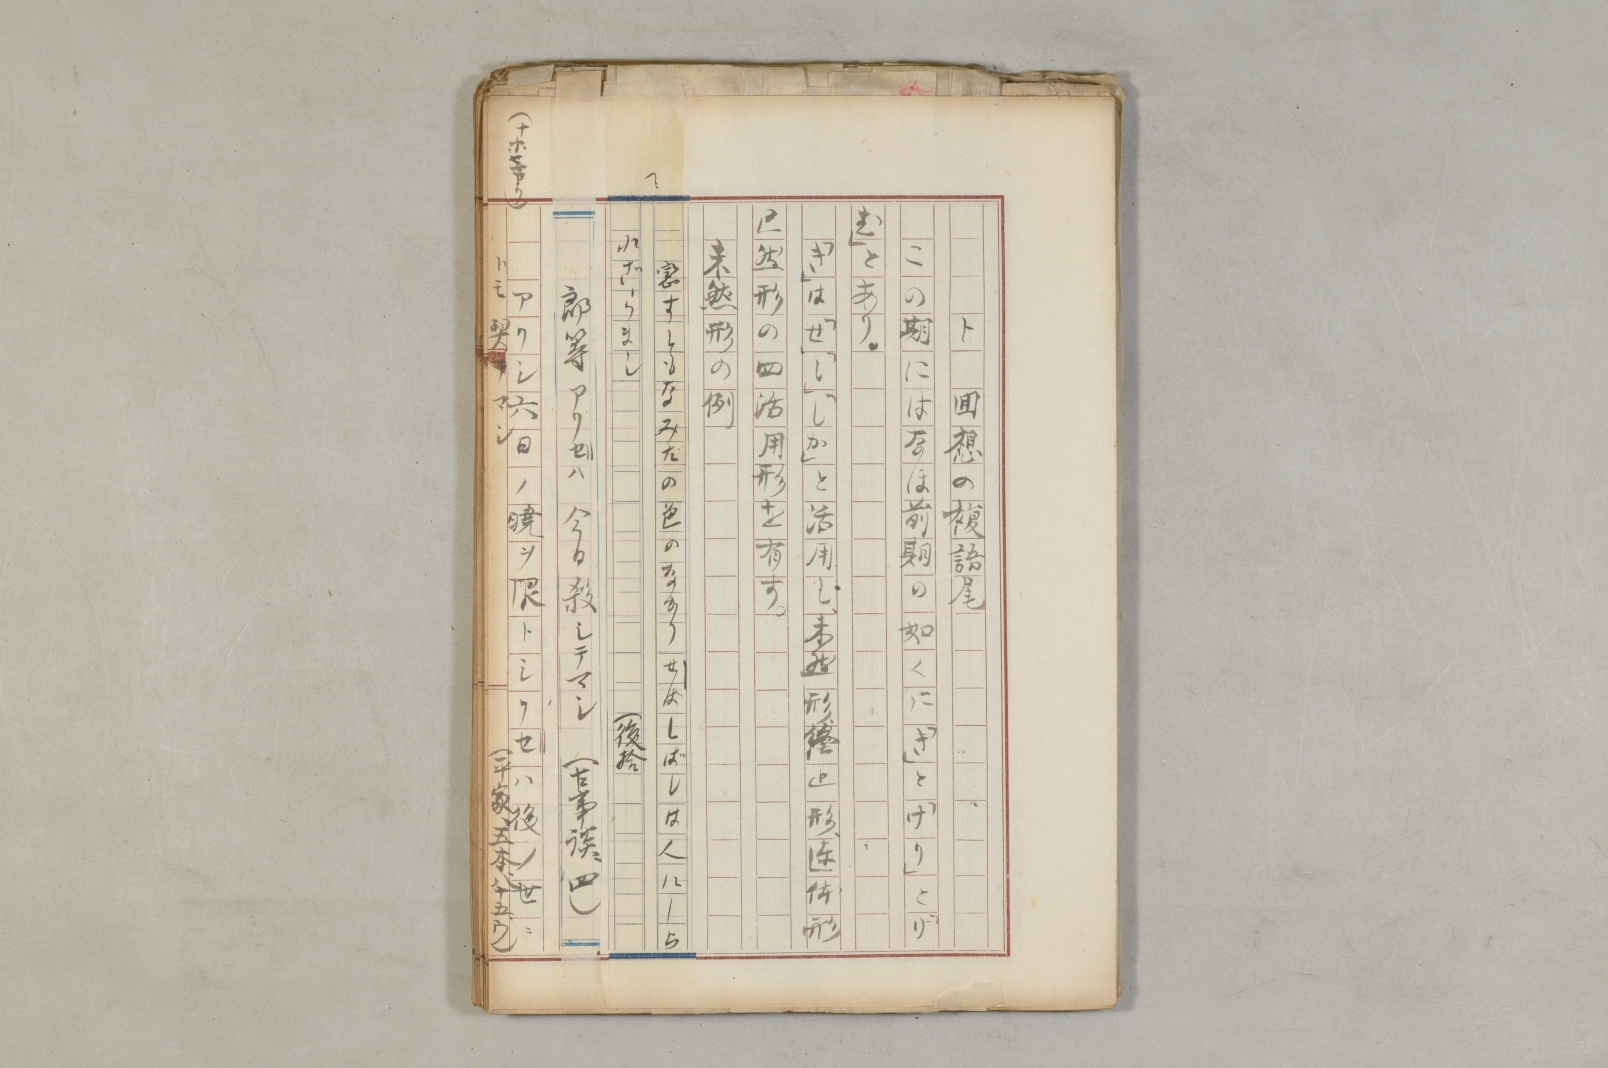 ト　回想の複語尾
この期にはなほ前期の如くに「き」と「けり」と「け
む」とあり。
「き」は「せ」「し」「しか」と活用し、未然形、終止形、連体形
已然形の四活用形を有す。
未然形の例
恋すともなみだの色のなかりせばしばしは人にしら
れざらまし　（後拾
郎等アリセハ　今日殺シテマシ　（古事談、四）
アリシ六日ノ暁ヲ限トシリセハ後ノ世ニ
トモ契ラマシ　（平家、五本、八十五ウ）